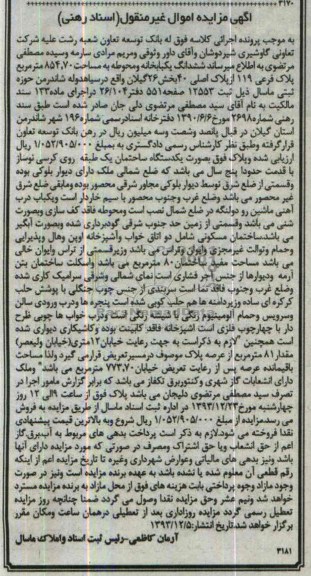 ۳۱۷۰
آگهی مزایده اموال غیرمنقول(اسناد رهنی)
به موجب پرونده اجرائی کلاسه فوق له بانک توسعه تعاون شعبه رشت علیه شرکت
تعاونی گاوشیری شیردوشان وآقای داور وثوقی ومریم مرادی سارمه وسیده مصطفی
مرتضوی به اطلاع میرساند ششدانگ یکبابخانه ومحوطه به مساحت ۸۵۴,۷۰مترمربع
پلاک فرعی ۱۱۹ ازپلاک اصلی ۴۰بخش۲۶گیلان واقع درسیاهدوله شاندرمن حوزه
ثبتی ماسال ذیل ثبت ۱۲۵۵۳ صفحه۵۵۱ دفتر۲۶/۱۰۴ دراجرای ماده۱۳۳ سند
مالکیت به نام آقای سید مصطفی مرتضوی دلی جان صادر شده است طبق سند
رهنی شماره۲۶۹۸ مورخ۱۳۹۰/۶/۶ دفترخانه اسنادرسمی شماره۱۹۶ شهر شاندرمن
استان گیلان در قبال پانصد وشصت وسه میلیون ریال در رهن بانک توسعه تعاون
قرارگرفته وطبق نظر کارشناس رسمی دادگستری به بمبلغ ۱/۰۵۲/۹۰۵/۰۰۰ ریال
ارزیابی شده وپلاک فوق بصورت یکدستگاه ساختمان یک طبقه روی کرسی نوساز
با قدمت حدودا پنج سال می باشد که ضلع شمالی ملک دارای دیوار بلوکی بوده
وقسمتی از ضلع شرق توسط دیوار بلوکی مجاور شرقی محصور بوده ومابقی ضلع شرق
غیر محصور می باشد وضلع غرب وجنوب محصور با سیم خاردار است ویکباب درب
آهنی ماشین رو دولنگه در ضلع شمال نصب است ومحوطه فاقد کف سازی وبصورت
شنی می باشد وقسمتی از زمین حد جنوب شرقی گودبرداری شده وبصورت آبگیر
می باشدساختمان مسکونی شامل دو اتاق خواب وآشپزخانه اوپن وهال وپذیرایی
وحمام وتوالت غیرمجزی وایوان وتراس می باشد وزیرقسمتی از تراس وایوان خالی
می باشد مساحت مفید ساختمان ۸۰ مترمربع می باشد اسکلت ساختمان بتن
ارمه ودیوارها از جنس آجر فشاری است نمای شمالی وشرقی سرامیک کاری شده
وضلع غرب وجنوب فاقد نما است سربندی از جنس چوب جنگلی با پوشش حلب
کرکره ای ساده وزیردامنه ها هم حلب کوبی شده است پنجره ها ودرب ورودی سالن
وسرویس وحمام آلومینیوم رنگی با شیشه رنگی است درب خواب ها چوبی طرح
دار با چهارچوب فلزی است آشپزخانه فاقد کابینت بوده وکاشیکاری دیواری شده
است همچنین "لازم به ذکراست به جهت رعایت خیابان۱۲متری(خیابان ولیعصر)
مقدار ۸۱ مترمربع از عرصه پلاک موصوف درمسیرتعریض قرارمی گیرد ولذا مساحت
باقیمانده عرصه پس از رعایت تعریض خیابان۷۷۳,۷۰ مترمربع می باشد" وملک
دارای انشعابات گاز شهری وکنتوربرق تکفاز می باشد که برابر گزارش مامور اجرا در
تصرف سید مصطفی مرتضوی دلیجان می باشد پلاک فوق از ساعت ۹الی ۱۲ روز
چهارشنبه مورخ۱۳۹۳/۱۲/۲۳ در اداره ثبت اسناد ماسال از طریق مزایده به فروش
می رسدمزایده از مبلغ ۱/۰۵۲/۹۰۵/۰۰۰ ریال شروع وبه بالاترین قیمت پیشنهادی
نقدا فروخته می شود.لازم به ذکر است پرداخت بدهی های مربوط به آب،برق،گاز
اعم از حق انشعاب ویا حق اشتراک ومصرف در صورتی که مورد مزایده دارای آنها
باشد ونیز بدهی های مالیاتی وعوارض شهرداری وغیره تا تاریخ مزایده اعم از اینکه
رقم قطعی آن معلوم شده یا نشده باشد به عهده برنده مزایده است ونیز در صورت
وجود مازاد وجوه پرداختی بابت هزینه های فوق از محل مازاد به برنده مزایده مسترد
خواهد شد ونیم عشر وحق مزایده نقدا وصول می گردد ضمنا چنانچه روز مزایده
تعطیل رسمی گردد مزایده روزاداری بعد از تعطیلی درهمان ساعت ومکان مقرر
برگزار خواهد شد.تاریخ انتشار:۱۳۹۳/۱۲/۵
آرمان کاظمی-رئیس ثبت اسناد واملاک ماسال
۳۱۸۱